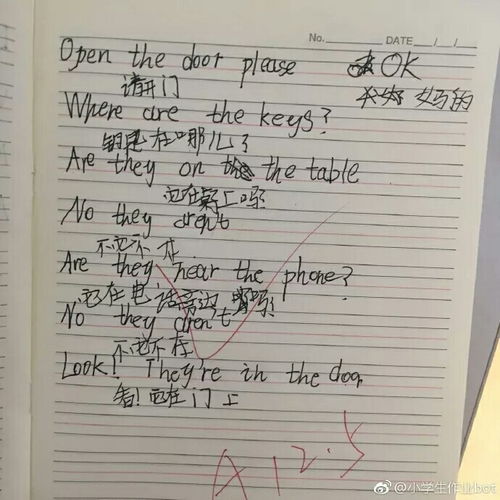 No. DATE / /
Open the door please OK
请开门 妈的
Where are the keys?
钥匙在哪儿?
Are they on the table
它在桌上吗
No they aren't
不它不在
Are they near the phone?
它在电话旁边吗
No they aren't
不它不在
Look! They're in the door
看!它在门上
A 12.5
@小学生作业bot